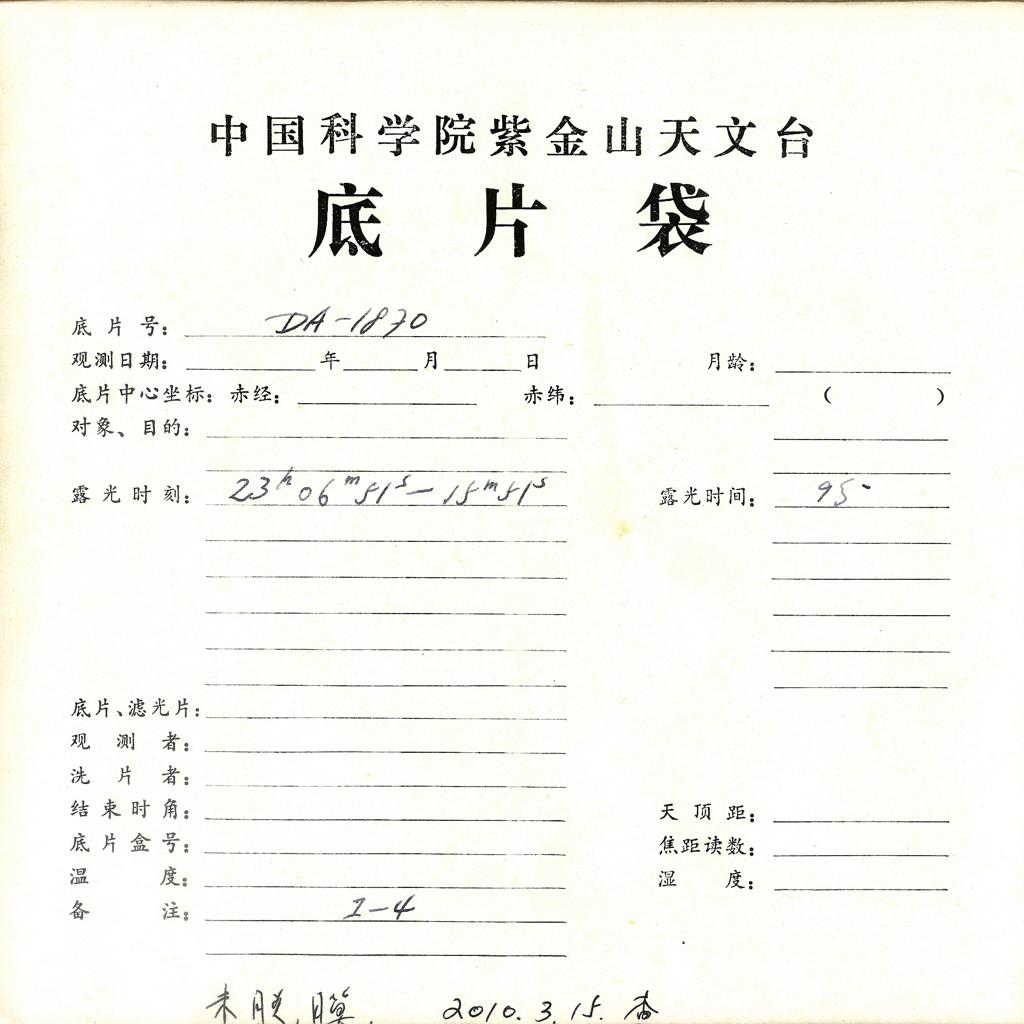 中国科学院紫金山天文台
底片袋
底片号： DA-1870
观测日期： 年 月 日 月龄：
底片中心坐标：赤经： 赤纬： （ ）
对象、目的：
露光时刻： 23h06m51s—15m51s 露光时间：
底片、滤光片：
观测者：
洗片者：
结束时角： 天顶距：
底片盒号： 焦距读数：
温度： 湿度：
备注： I-4
未脱膜. 2010.3.15.